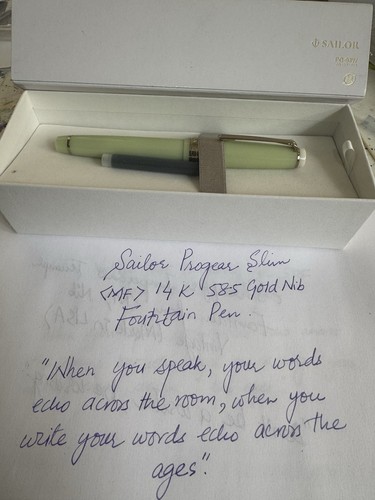 SAILOR
Sailor Progear Slim
<MF> 14K 585 Gold Nib
Fountain Pen.
"When you speak, your words
echo across the room, when you
write your words echo across the
ages".